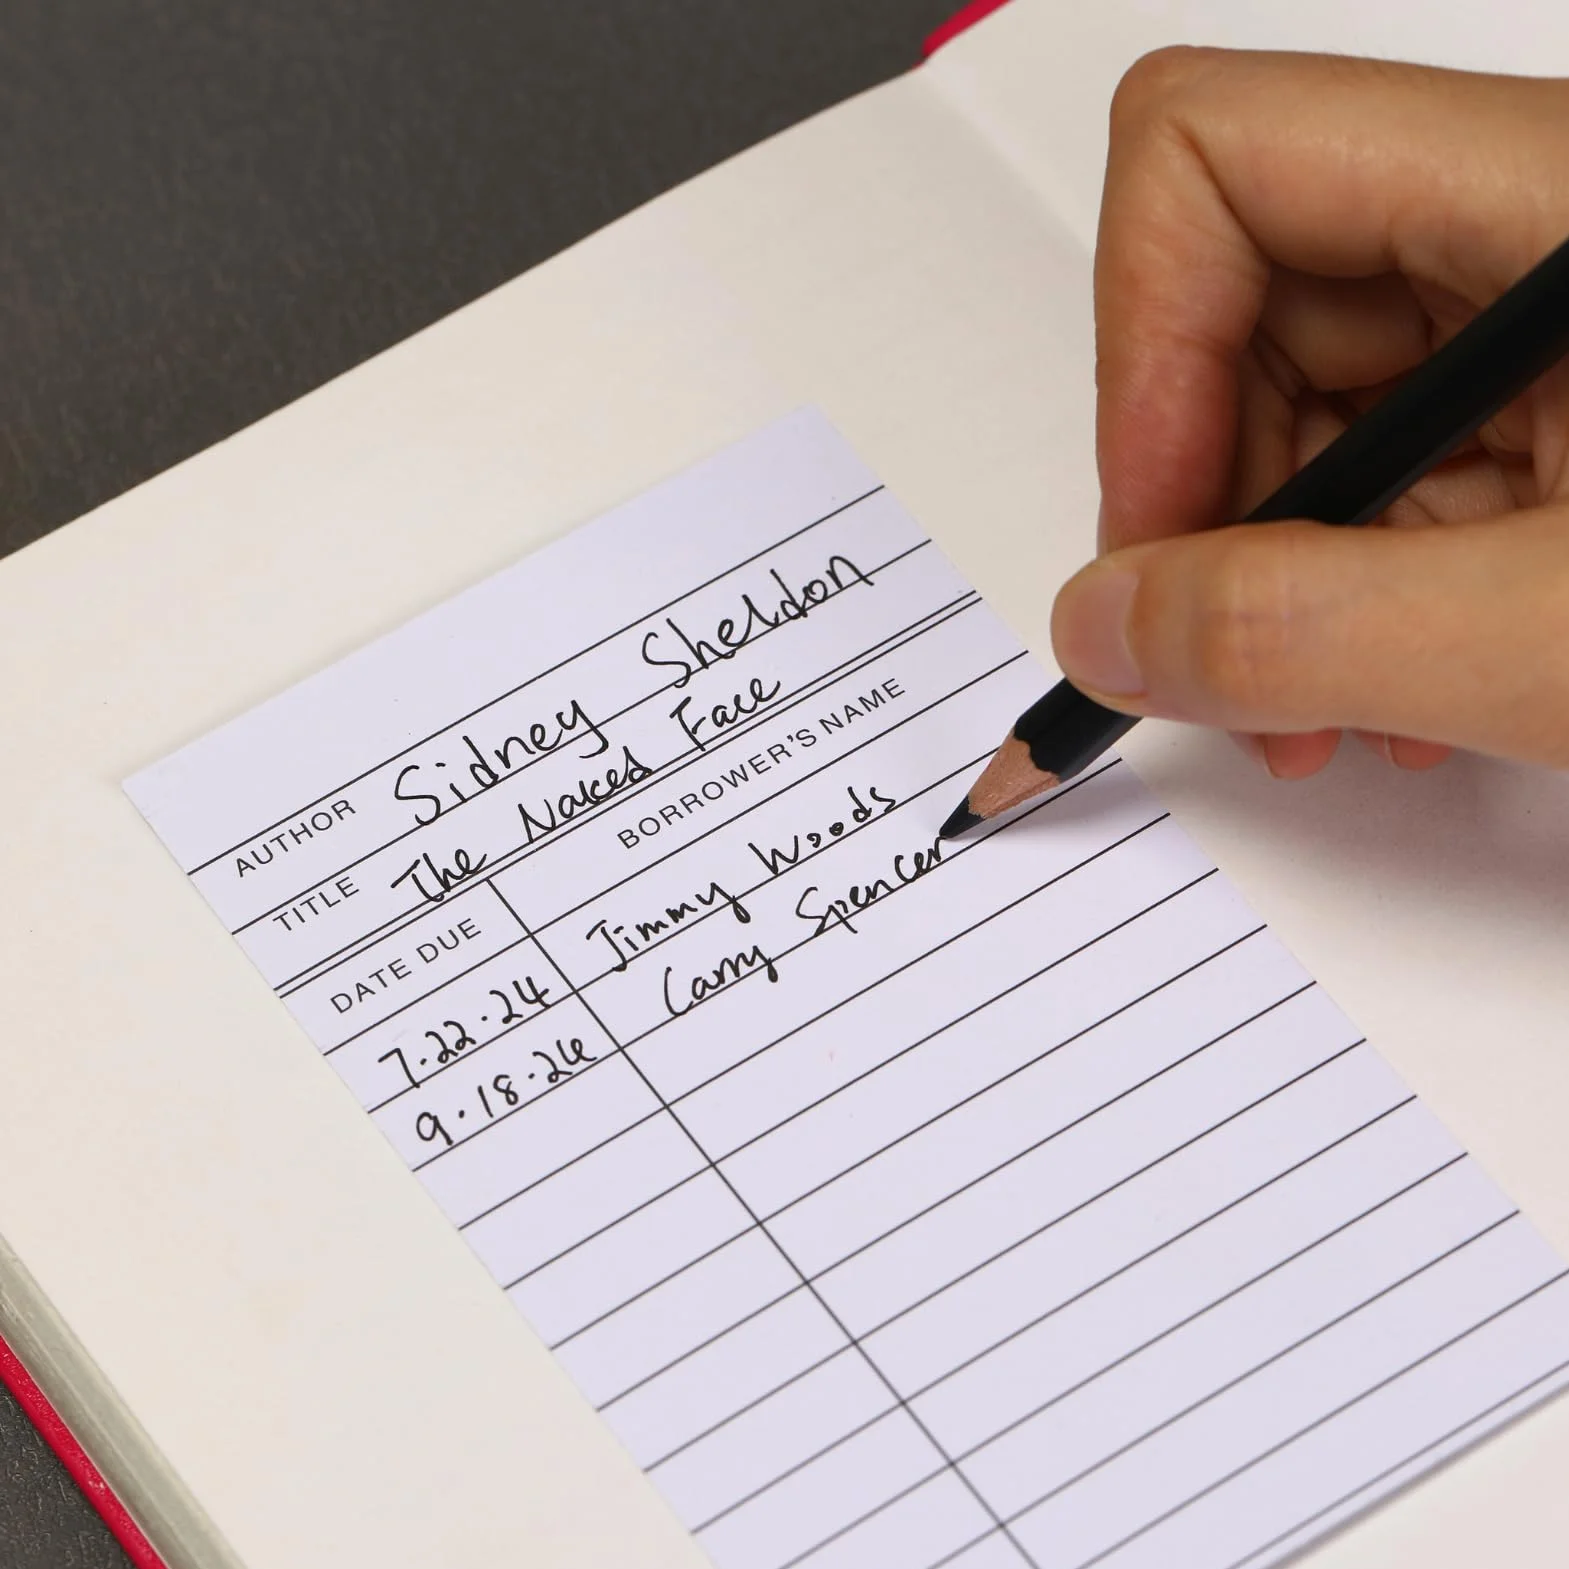 AUTHOR Sidney Sheldon
TITLE The Naked Face
DATE DUE BORROWER'S NAME
7.22.24 Jimmy Woods
9.18.24 Carry Spencer